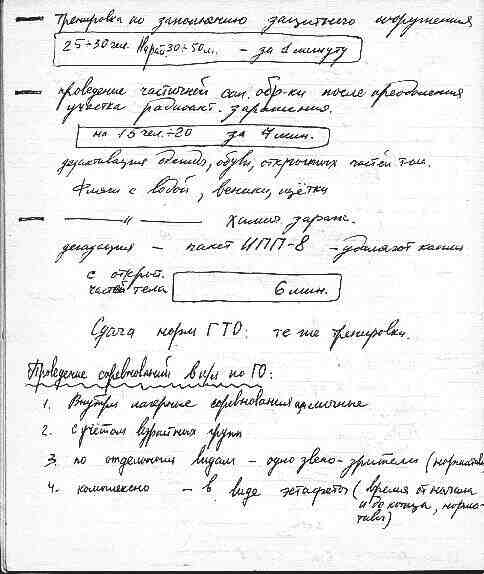 — Тренировка по заполнению защитного сооружения
25÷30 чел. 30÷50 м. – за 1 минуту
— проведение частичной сан. обр-ки после преодоления
участка радиоакт. заражения.
на 15 чел.÷20 за 7 мин.
дезактивация одежды, обуви, открытых частей тела.
Фляги с водой, веники, щётки
— —— " —— химич. зараж.
дегазация – пакет ИПП-8 – удаляют капли
с открыт.
частей тела 6 мин.
Сдача норм ГТО: те же тренировки.
Проведение соревнований в п/л по ГО:
1. Внутри лагерные соревнования
2. с учётом возрастных групп
3. по отдельным видам – одно звено-зрители (нормативы
4. комплексно – в виде эстафеты (время от начала
и до конца, норма-
тивы)